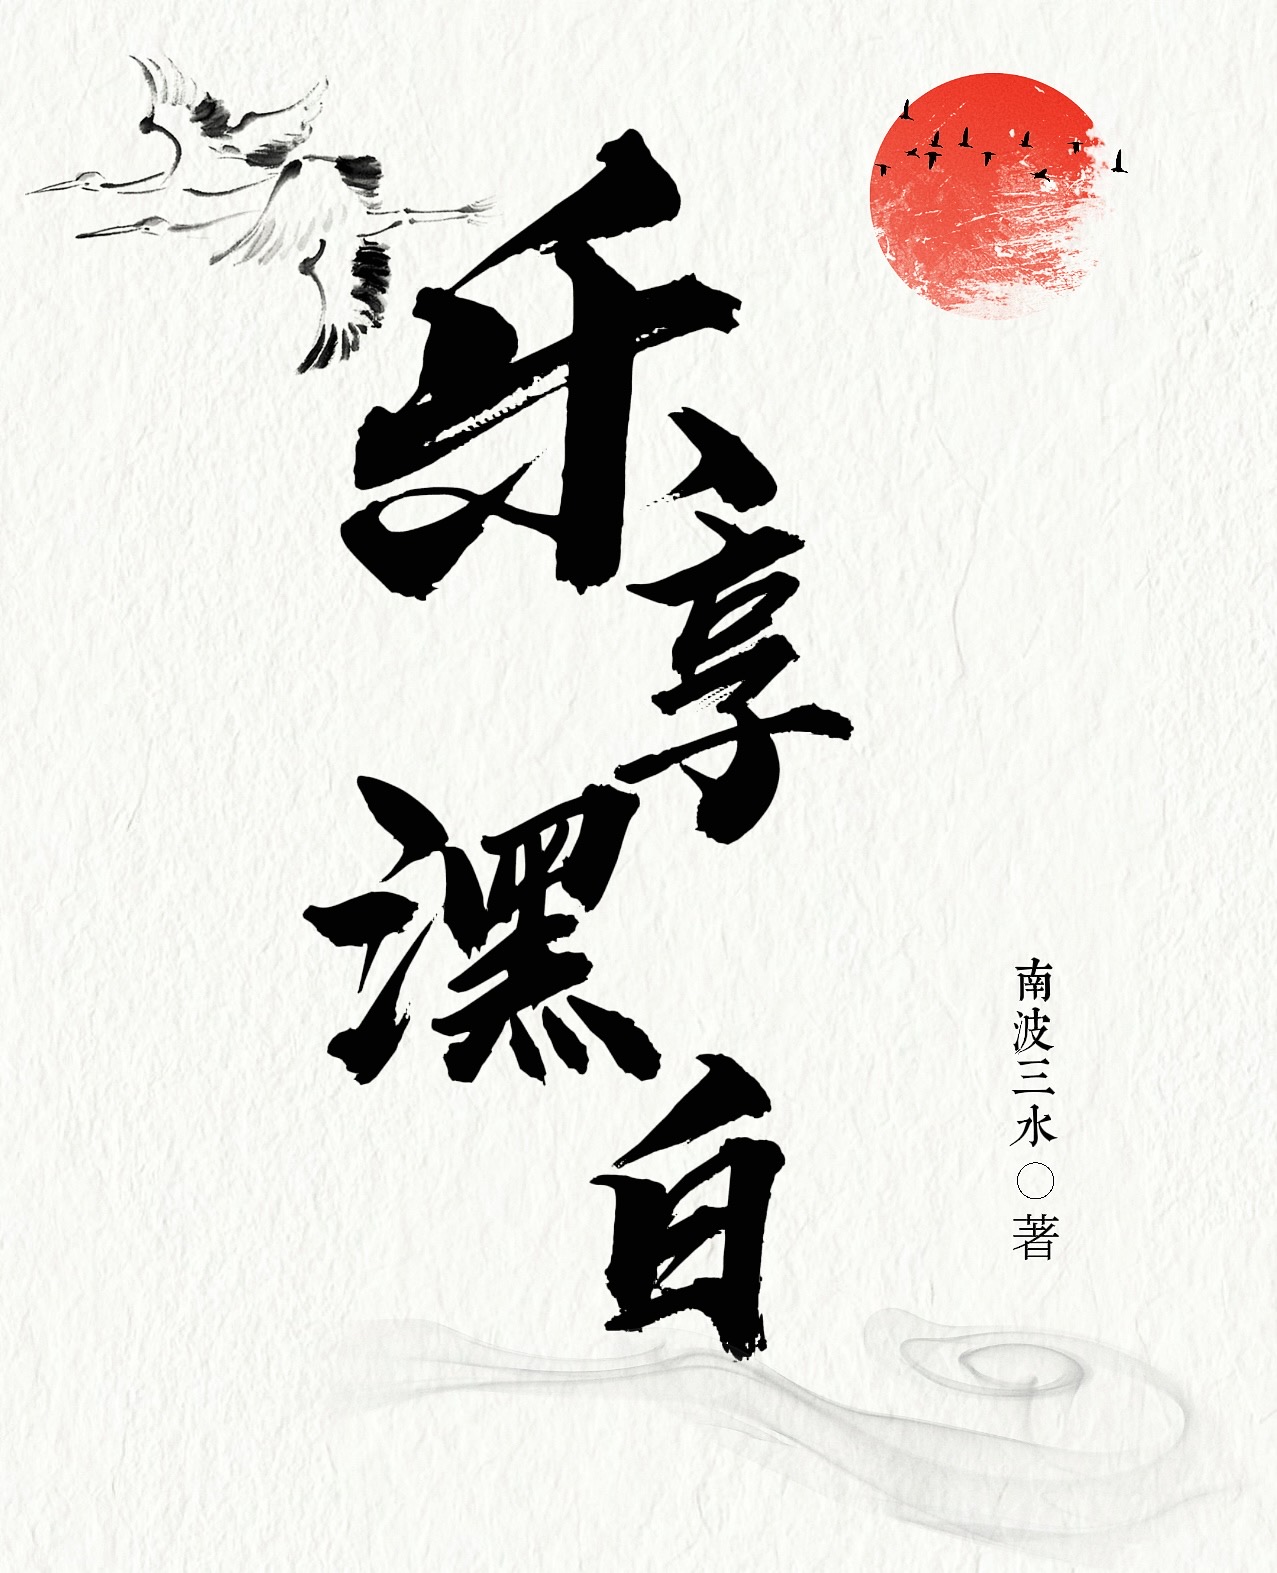 乐享潶白
南波三水○著